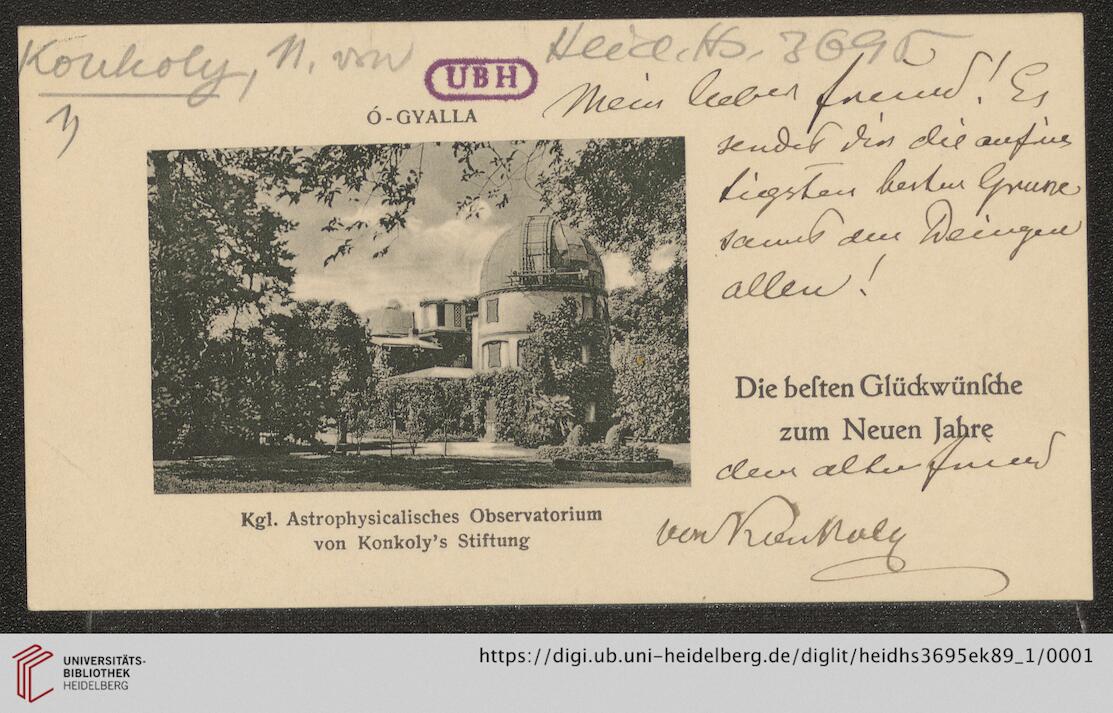 Konkoly, N. von
Heid. Hs. 3695
1)
UBH
Ó-GYALLA
Mein lieber Freund! Es
sendet dir die aufrich
tigsten besten Grüsse
samt den Deinigen
allen!
Die beſten Glückwünſche
zum Neuen Jahre
dein alter Freund
von Konkoly
Kgl. Astrophysicalisches Observatorium
von Konkoly's Stiftung
UNIVERSITÄTS-
BIBLIOTHEK
HEIDELBERG
https://digi.ub.uni-heidelberg.de/diglit/heidhs3695ek89_1/0001